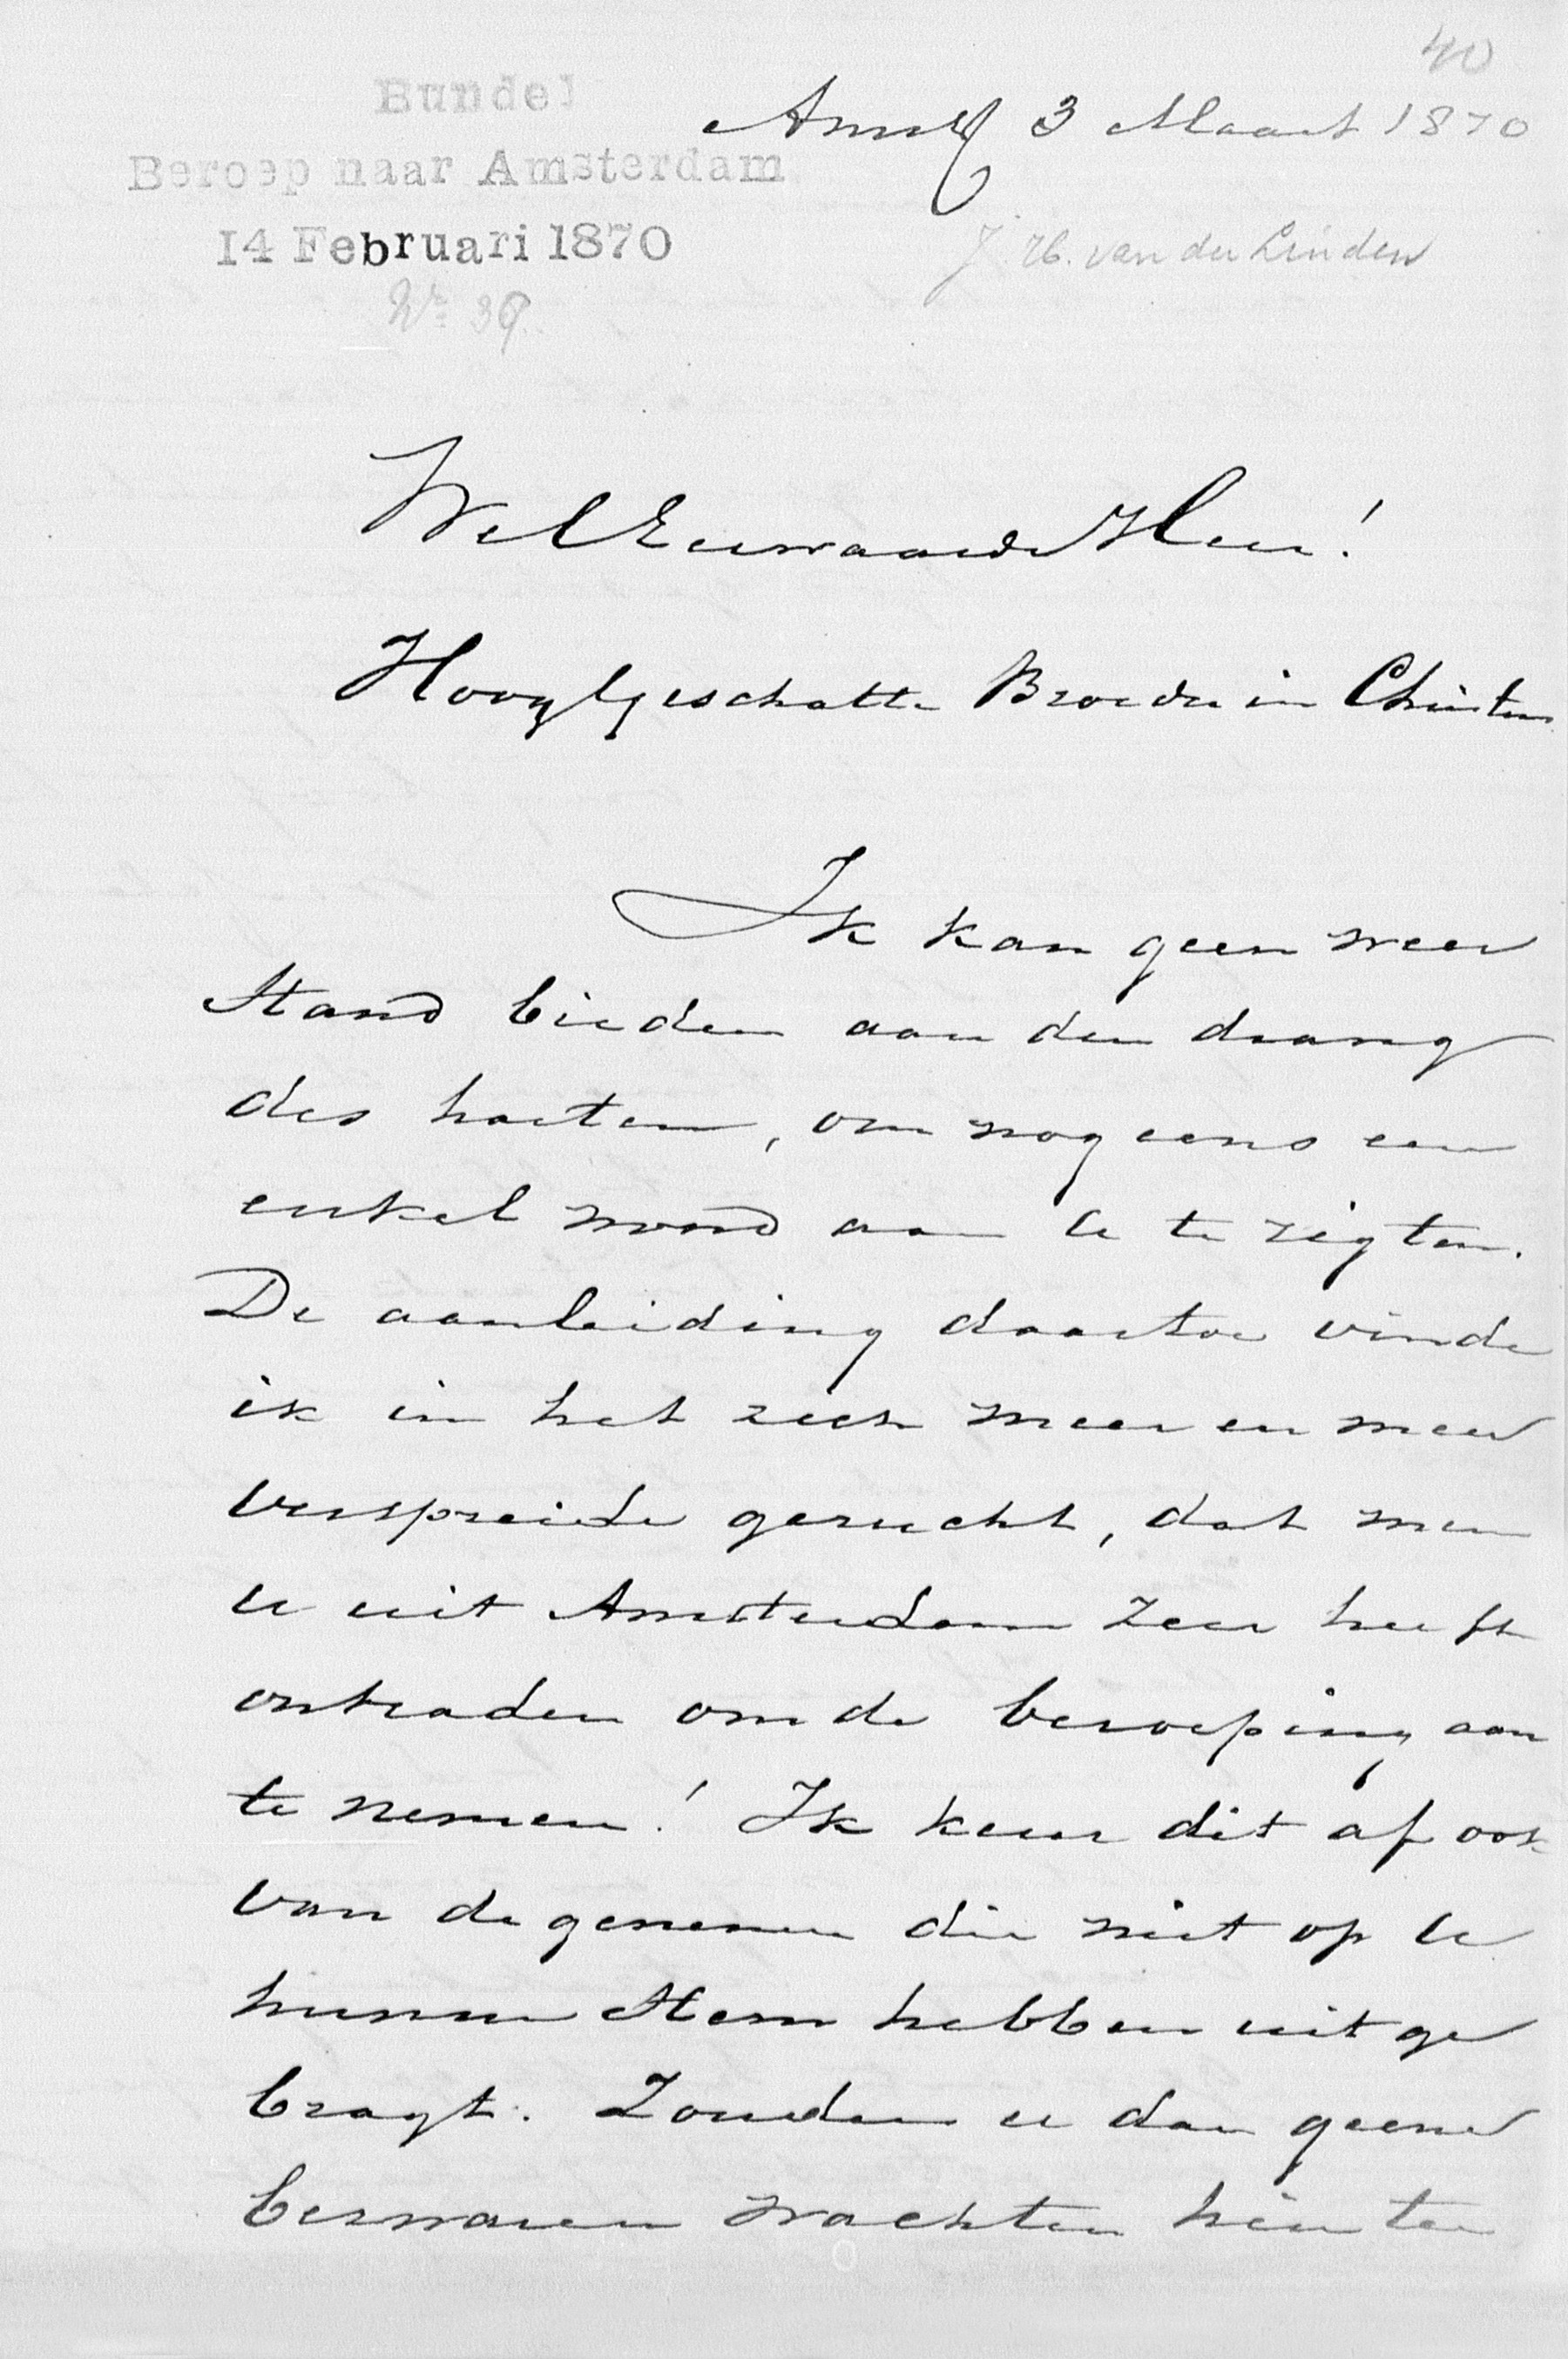 40
Bundel
Beroep naar Amsterdam
14 Februari 1870
No 39.
Amst 3 Maart 1870
J. H. van der Linden
WelEerwaarde Heer!
HoogGeschatte Broeder in Christus
Ik kan geen weer
stand bieden aan den drang
des harten, om nog eens een
enkel woord aan U te rigten.
De aanleiding daartoe vinde
ik in het zich meer en meer
verspreide gerucht, dat men
U uit Amsterdam zeer heeft
ontraden om de beroeping aan
te nemen! Ik keur dit af ook
van de genen die niet op U
hunne stem hebben uitge
bragt. Zouden U dan geene
bezwaren wachten hier ter